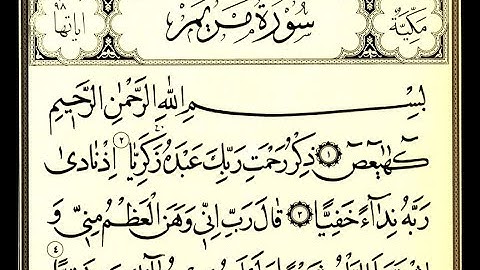 مكية سورة مريم آياتها ٩٨
بِسْمِ اللهِ الرَّحْمٰنِ الرَّحِيمِ
كٓهٰيٰعٓصٓ ١ ذِكْرُ رَحْمَتِ رَبِّكَ عَبْدَهُ زَكَرِيَّا ٢ اِذْ نَادٰى
رَبَّهُ نِدَآءً خَفِيًّا ٣ قَالَ رَبِّ اِنِّي وَهَنَ الْعَظْمُ مِنِّي وَ
٤